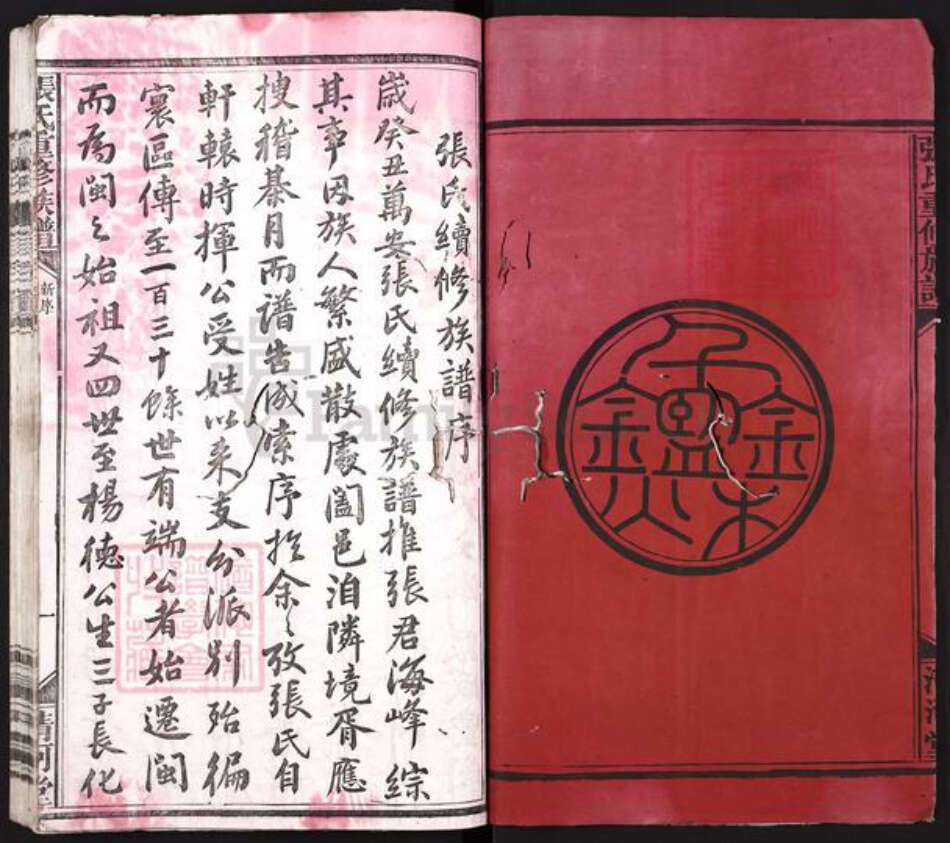 張氏重修族譜
清河堂
張氏續修族譜序
歲癸丑萬安張氏續修族譜推張君海峰綜
其事因族人繁盛散處闔邑洎隣境胥應
搜稽朞月而譜告成索序於余〻攷張氏自
軒轅時揮公受姓以来支分派別殆徧
寰區傳至一百三十餘世有端公者始遷閩
而為閩之始祖又四世至楊德公生三子長化
張氏重修族譜
新序
一
清河堂